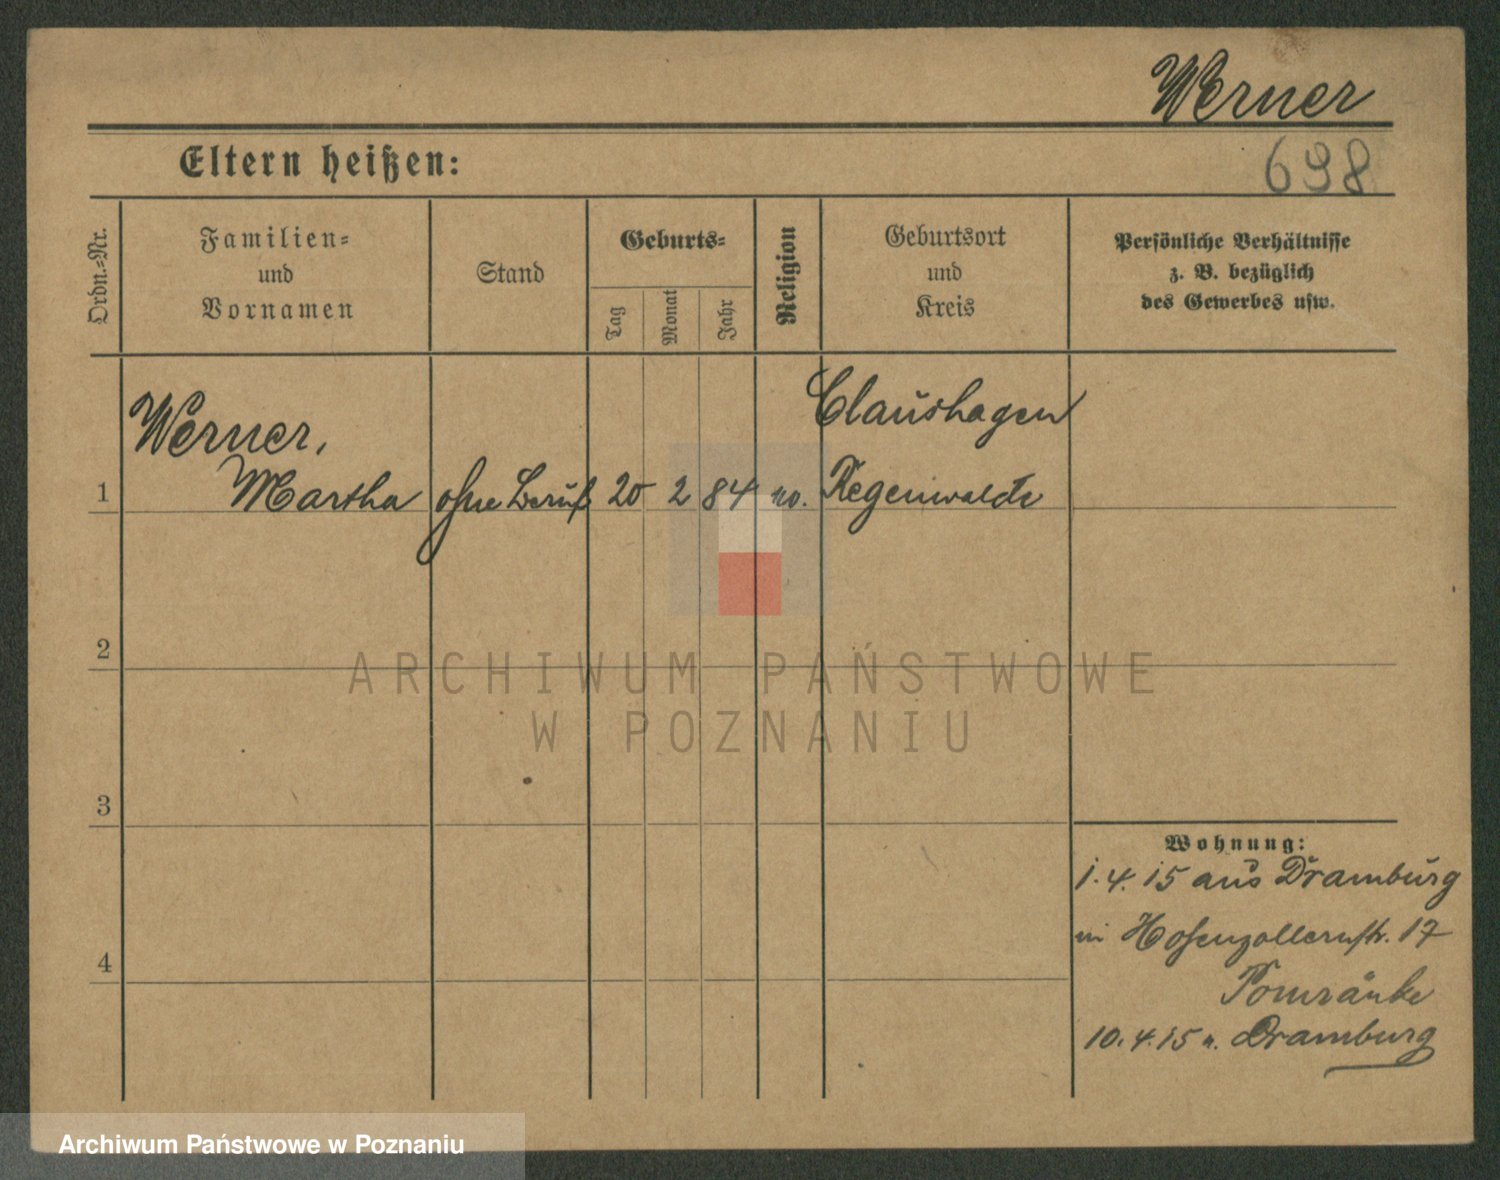 Werner
Eltern heißen:
698
Ordn.-Nr.
Familien-
und
Vornamen
Stand
Geburts-
Tag
Monat
Jahr
Religion
Geburtsort
und
Kreis
Persönliche Verhältnisse
z. B. bezüglich
des Gewerbes usw.
Werner,
Claushagen
1 Martha ohne Beruf 20 2 84 Regenwalde
2
3
4
Wohnung:
1.4.15 aus Dramburg
in Hohenzollernstr. 17
Pomränke
10.4.15 n. Dramburg
ARCHIWUM PAŃSTWOWE
W POZNANIU
Archiwum Państwowe w Poznaniu